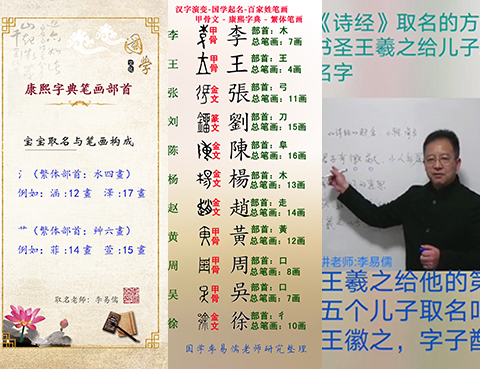 国学
康熙字典笔画部首
宝宝取名与笔画构成
氵(繁体部首:水四畫)
例如:涵:12畫 澤:17畫
艹(繁体部首:艸六畫)
例如:菲:14畫 萱:15畫
取名老师:李易儒
汉字演变-国学起名-百家姓笔画
甲骨文 - 康熙字典 - 繁体笔画
李 甲骨 李 部首:木 总笔画:7画
王 甲骨 王 部首:王 总笔画:4画
张 金文 張 部首:弓 总笔画:11画
刘 篆文 劉 部首:刀 总笔画:15画
陈 金文 陳 部首:阜 总笔画:16画
杨 金文 楊 部首:木 总笔画:13画
赵 金文 趙 部首:走 总笔画:14画
黄 甲骨 黃 部首:黃 总笔画:12画
周 甲骨 周 部首:口 总笔画:8画
吴 甲骨 吳 部首:口 总笔画:7画
徐 金文 徐 部首:彳 总笔画:10画
国学李易儒老师研究整理
《诗经》取名的方
书圣王羲之给儿子
名字
讲老师:李易儒
王羲之给他的第
五个儿子取名叫
王徽之,字子